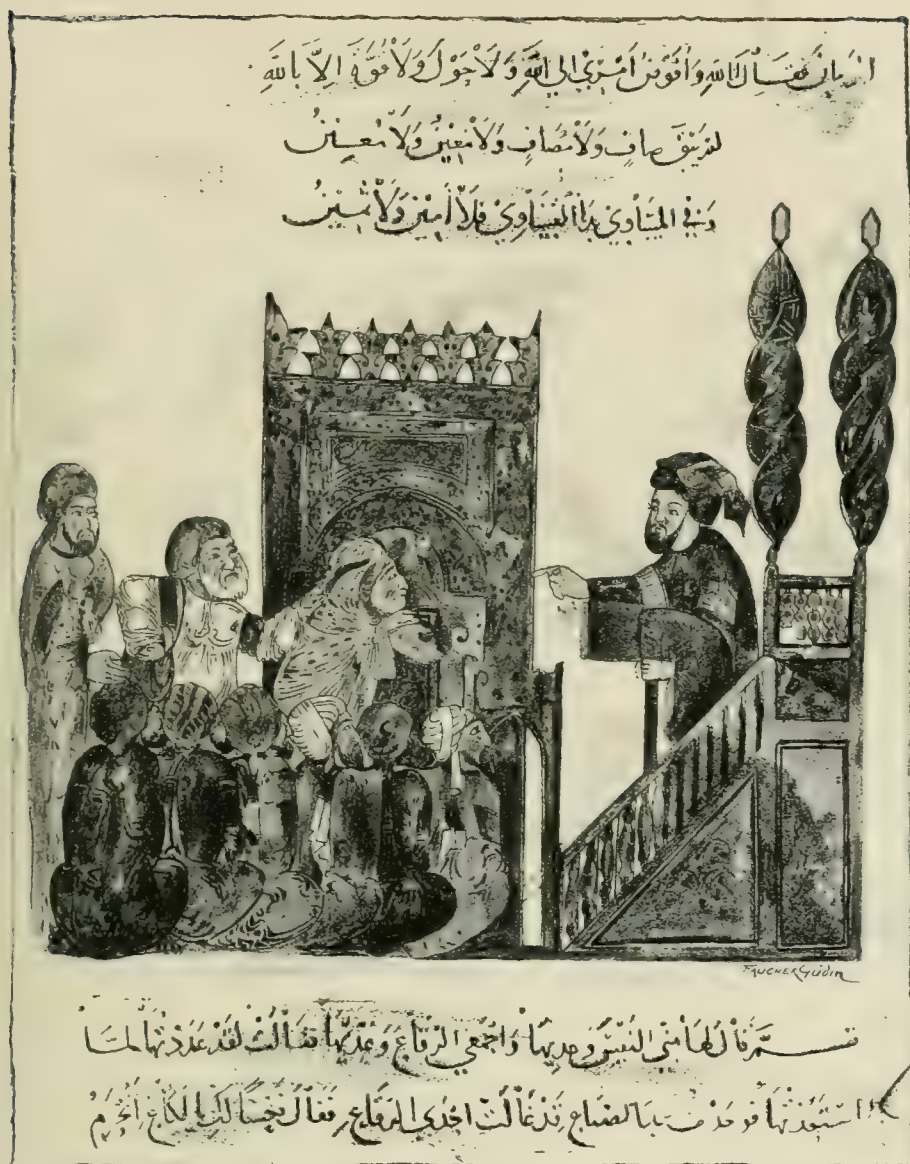 فقال انا لله وَأُفَوِّضُ أَمْرِي الى اللهِ وَلَا حَوْلَ وَلَا قُوَّةَ اِلَّا بِاللهِ
لم يَبْقَ صافٍ وَلَا مُصَافٍ وَلَا مَعِينٌ وَلَا مُعِينُ
وَفي المَسَاوِي بَدَا التَّسَاوِي فَلَا أَمِينٌ وَلَا ثَمِينُ
ثُمَّ قال لها مَنِّي النَفْسَ وعِدِيهَا وَاجْمَعِي الرِّقَاعَ وَعُدِّيهَا فقالَتْ لَقَدْ عَدَدْتُهَا لَمَّا
اسْتَعَدْتُهَا فوجَدْتُ يد الضياع قَدْ غَالَتْ اِحْدَى الرِقَاعِ فَقَالَ تَعْسًا لَكِ يا لَكَاعِ أَنُحْرَمُ
FAUCHER GUDIN